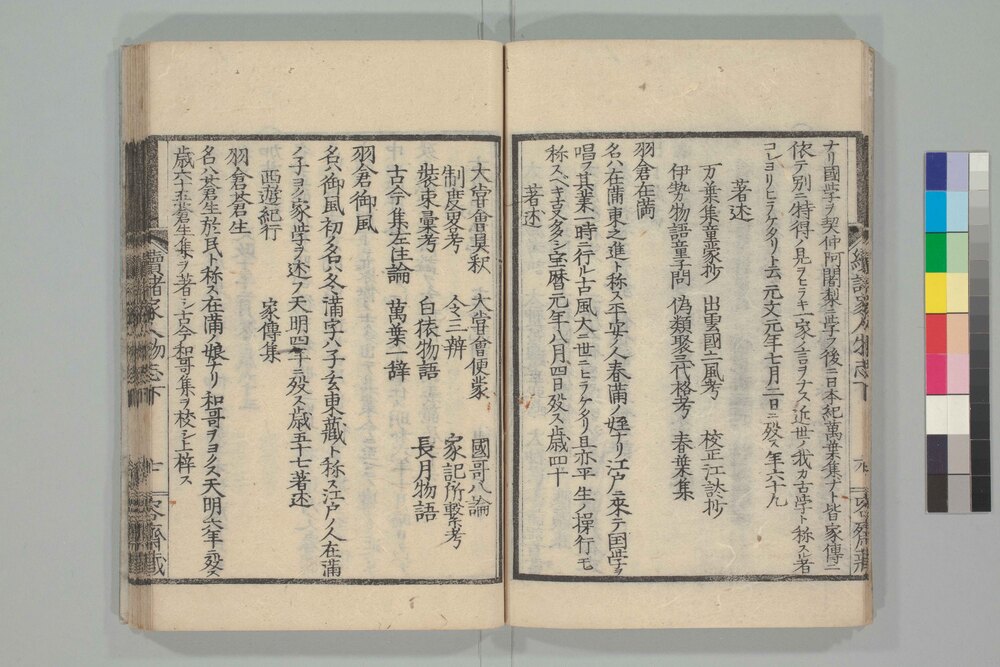 ナリ國学ヲ契仲阿闍梨ニ学フ後ニ日本紀萬葉集ナト皆家傳ニ
依テ別ニ特得ノ見ヲヒラキ一家ノ言ヲナス近世ノ我カ古学ト称スル者
コレヨリヒラケタリト云 元文元年七月二日ニ歿ス年六十九
著述
万葉集童蒙抄 出雲國土風考 校正江談抄
伊勢物語童子問 偽類聚三代格考 春葉集
羽倉在満
名ハ在満東之進ト称ス平安ノ人春満ノ姪ナリ江戸ニ來テ国学ヲ
唱フ其業一時ニ行ル古風大ニ世ニヒラケタリ且亦平生ノ操行モ
称スベキ亥多シ宝暦元年八月四日歿ス歳四十
著述
大嘗會具釈 大嘗會便蒙 國哥八論
制度畧考 令三辨 家記所繋考
装束彙考 白依物語 長月物語
古今集左注論 萬葉一辞
羽倉御風
名ハ御風初名ハ冬満字ハ子玄東蔵ト称ス江戸ノ人在満
ノ子ヨク家学ヲ述フ天明四年ニ歿ス歳五十七著述
西遊紀行 家傳集
羽倉蒼生
名ハ蒼生於民ト称ス在満ノ娘ナリ和哥ヲヨクス天明六年ニ歿ス
歳六十五蒼生集ヲ著シ古今和哥集ヲ校シ上梓ス
續諸家人物志下